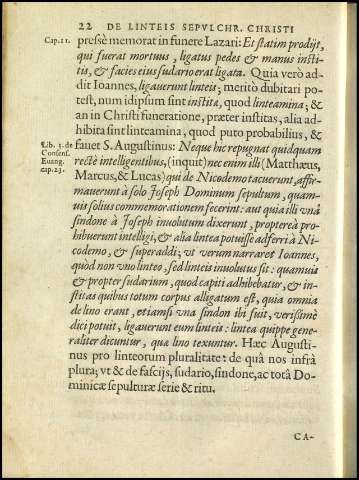 22 DE LINTEIS SEPVLCHR. CHRISTI
Cap. 11.
pressè memorat in funere Lazari: Et statim prodijt,
qui fuerat mortuus, ligatus pedes & manus insti-
tis, & facies eius sudario erat ligata. Quia verò ad-
dit Ioannes, ligauerunt linteis; meritò dubitari po-
test, num idipsum sint instita, quod linteamina; &
an in Christi funeratione, præter institas, alia ad-
hibita sint linteamina, quod puto probabilius, &
Lib. 3. de
Consens.
Euang.
cap. 23.
fauet S. Augustinus: Neque hic repugnat quidquam
rectè intelligentibus, (inquit) nec enim illi (Matthæus,
Marcus, & Lucas) qui de Nicodemo tacuerunt, affir-
mauerunt à solo Joseph Dominum sepultum, quam-
uis solius commemorationem fecerint: aut quia illi vnâ
sindone à Joseph inuolutum dixerunt, propterea pro-
hibuerunt intelligi, & alia lintea potuisse adferri à Ni-
codemo, & superaddi; vt verum narraret Ioannes,
quòd non vno linteo, sed linteis inuolutus sit: quamuis
& propter sudarium, quod capiti adhibebatur, & in-
stitas quibus totum corpus alligatum est, quia omnia
de lino erant, etiamsi vna sindon ibi fuit, verissimè
dici potuit, ligauerunt eum linteis: lintea quippe gene-
raliter dicuntur, quæ lino texuntur. Hæc Augusti-
nus pro linteorum pluralitate: de quâ nos infrà
plura; vt & de fascijs, sudario, sindone, ac totâ Do-
minicæ sepulturæ serie & ritu.
CA-